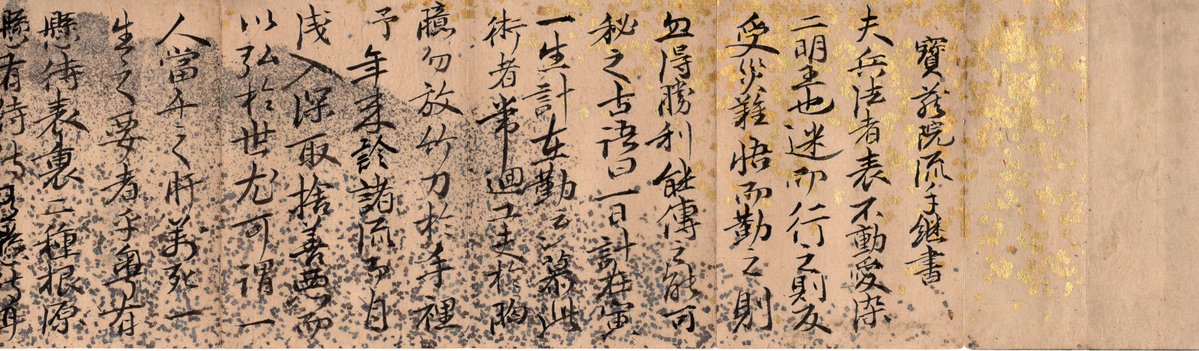 寳蔵院流手継書
夫兵法者表不動愛染
二明王也迷而行之則反
受災難悟而勤之則
忽得勝利能傳之能可
秘之古語曰一日計在寅
一生計在勤云慕此
術者常廻工夫於胸
臆勿放竹刀於手裡
予年来診諸流而自
浅入深取捨善悪而
以弘於世尤可謂一
人當千之肝万死一
生之要者乎粤有
懸待表裏二種根源
懸有待待有懸